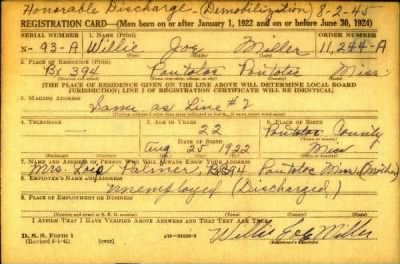 Honorable Discharge (Demobilization) 8-2-45
REGISTRATION CARD—(Men born on or after January 1, 1922 and on or before June 30, 1924)
SERIAL NUMBER 1. NAME (Print) ORDER NUMBER
N-93-A Willie Joe Miller 11,244-A
(First) (Middle) (Last)
2. PLACE OF RESIDENCE (Print)
Bx 394 Pontotoc Pontotoc Miss
[THE PLACE OF RESIDENCE GIVEN ON THE LINE ABOVE WILL DETERMINE LOCAL BOARD
JURISDICTION; LINE 2 OF REGISTRATION CERTIFICATE WILL BE IDENTICAL]
3. MAILING ADDRESS
Same as Line #2
[Mailing address if other than place indicated on line 2. If same insert word same]
4. TELEPHONE 5. AGE IN YEARS 6. PLACE OF BIRTH
22 Pontotoc County
DATE OF BIRTH
Aug 25 1922 Miss
7. NAME AND ADDRESS OF PERSON WHO WILL ALWAYS KNOW YOUR ADDRESS
Mrs. Lois Palmer, Bx 394 Pontotoc Miss (Mother)
8. EMPLOYER'S NAME AND ADDRESS
Unemployed (Discharged)
9. PLACE OF EMPLOYMENT OR BUSINESS
I AFFIRM THAT I HAVE VERIFIED ABOVE ANSWERS AND THAT THEY ARE TRUE.
D. S. S. Form 1 Willie Joe Miller
(Revised 6-1-41) (over) (Registrant's signature)